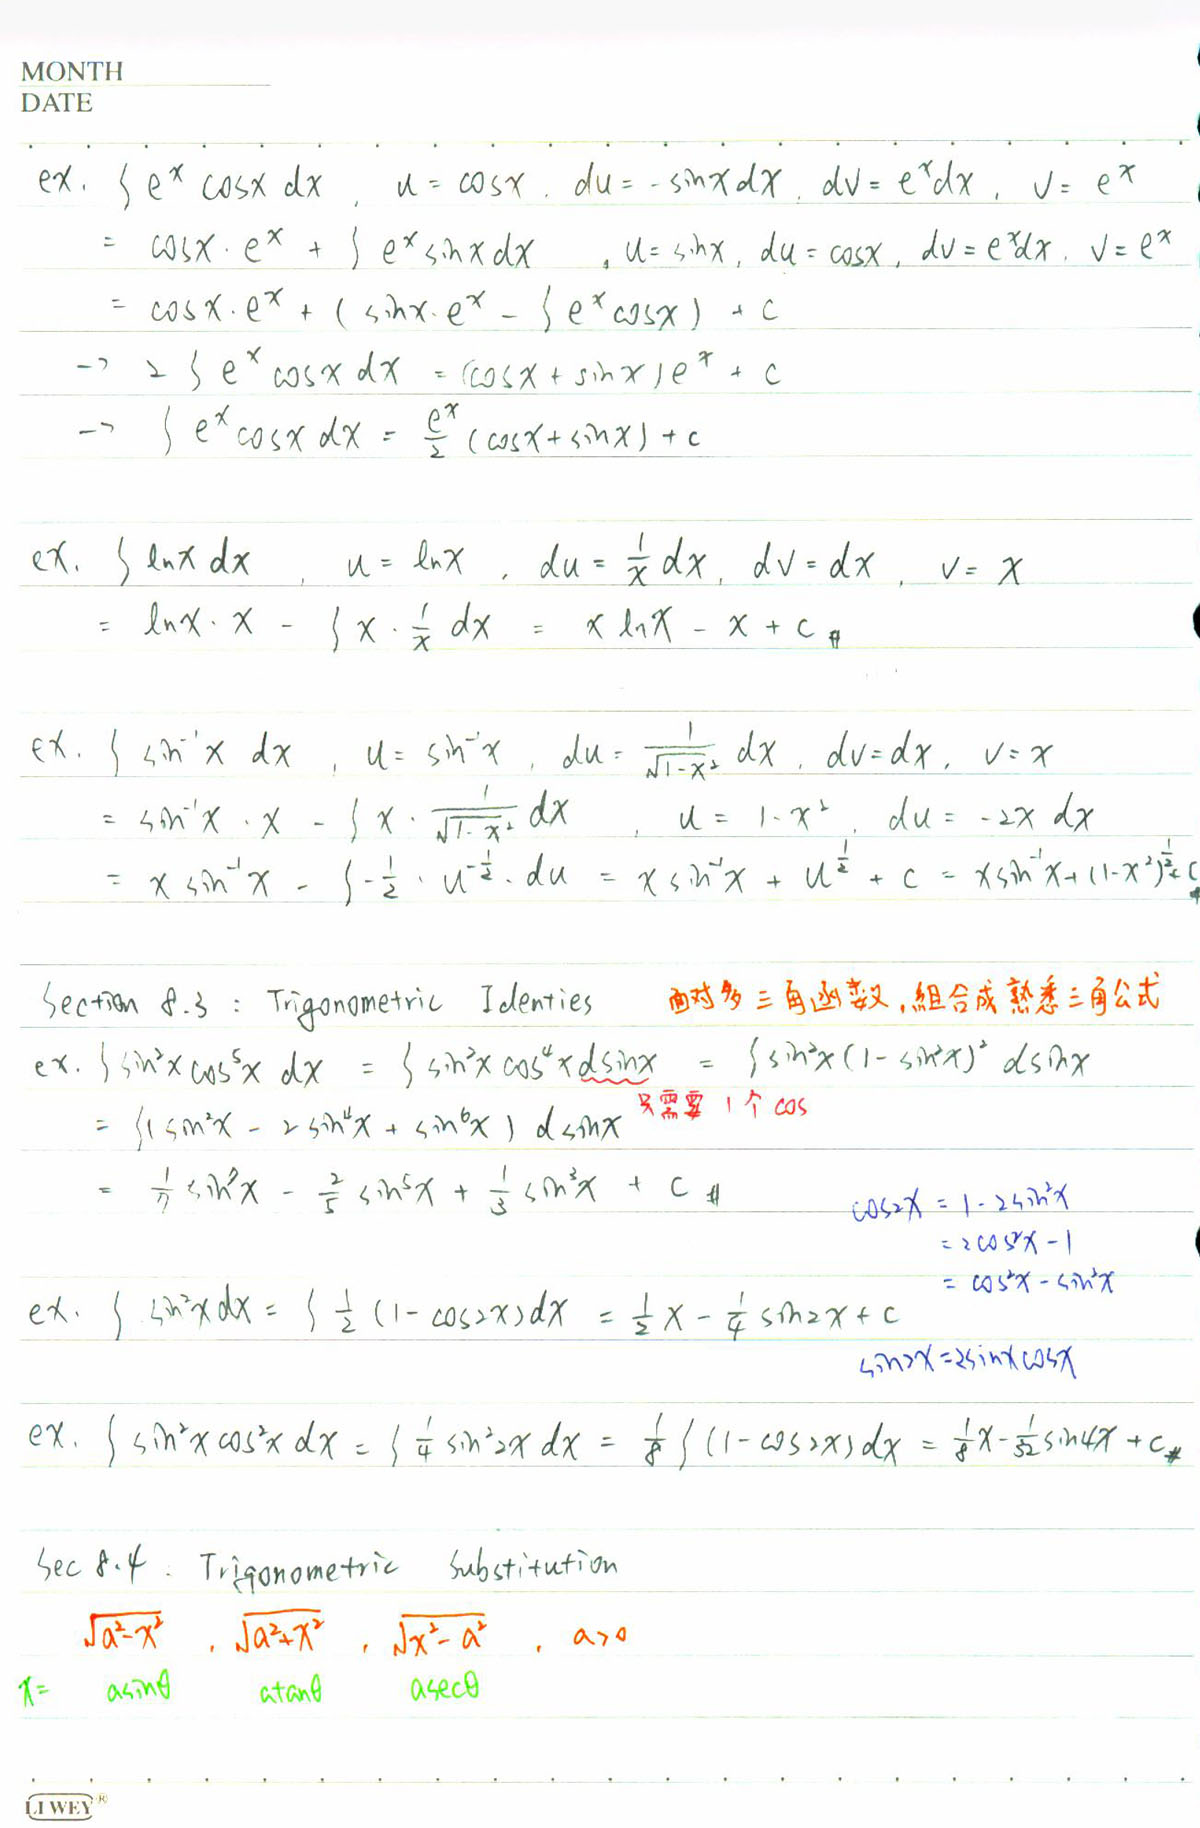 MONTH
DATE
ex. ∫ eˣ cosx dx , u = cosx , du = -sinx dx , dv = eˣdx , v = eˣ
= cosx · eˣ + ∫ eˣ sinx dx , u = sinx , du = cosx , dv = eˣdx , v = eˣ
= cosx · eˣ + ( sinx · eˣ - ∫ eˣ cosx ) + c
→ 2 ∫ eˣ cosx dx = (cosx + sinx) eˣ + c
→ ∫ eˣ cosx dx = eˣ/2 (cosx + sinx) + c
ex. ∫ lnx dx , u = lnx , du = 1/x dx , dv = dx , v = x
= lnx · x - ∫ x · 1/x dx = x lnx - x + c #
ex. ∫ sin⁻¹x dx , u = sin⁻¹x , du = 1/√(1-x²) dx , dv = dx , v = x
= sin⁻¹x · x - ∫ x · 1/√(1-x²) dx , u = 1-x² , du = -2x dx
= x sin⁻¹x - ∫ -1/2 · u^(-1/2) · du = x sin⁻¹x + u^(1/2) + c = x sin⁻¹x + (1-x²)^(1/2) + c #
Section 8.3 : Trigonometric Identies 面对多三角函数,組合成熟悉三角公式
ex. ∫ sin²x cos⁵x dx = ∫ sin²x cos⁴x dsinx = ∫ sin²x (1 - sin²x)² dsinx
只需要1个cos
= ∫ (sin²x - 2 sin⁴x + sin⁶x) dsinx
= 1/7 sin⁷x - 2/5 sin⁵x + 1/3 sin³x + c #
cos2x = 1 - 2sin²x
= 2cos²x - 1
= cos²x - sin²x
ex. ∫ sin²x dx = ∫ 1/2 (1 - cos2x) dx = 1/2 x - 1/4 sin2x + c
sin2x = 2sinxcosx
ex. ∫ sin²x cos²x dx = ∫ 1/4 sin²2x dx = 1/8 ∫ (1 - cos2x) dx = 1/8 x - 1/32 sin4x + c #
Sec 8.4 : Trigonometric Substitution
√(a²-x²) , √(a²+x²) , √(x²-a²) , a>0
x= asinθ atanθ asecθ
LI WEY ®